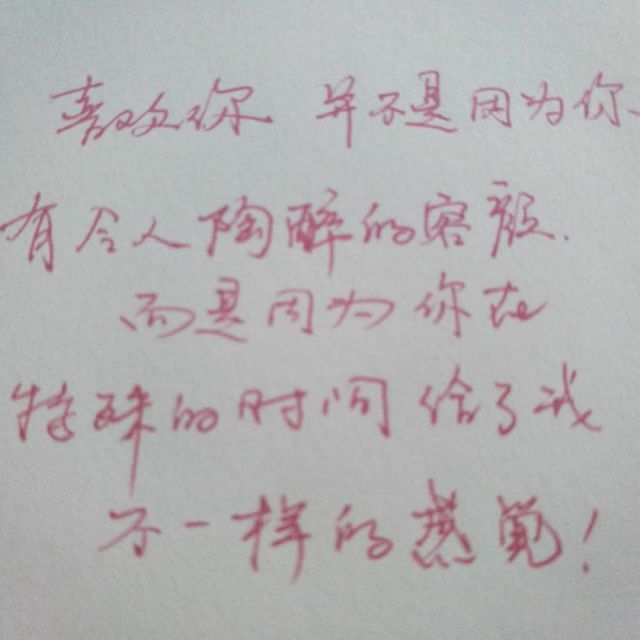 喜欢你 并不是因为你
有令人陶醉的容颜.
而是因为你在
特殊的时间给了我
不一样的感觉!